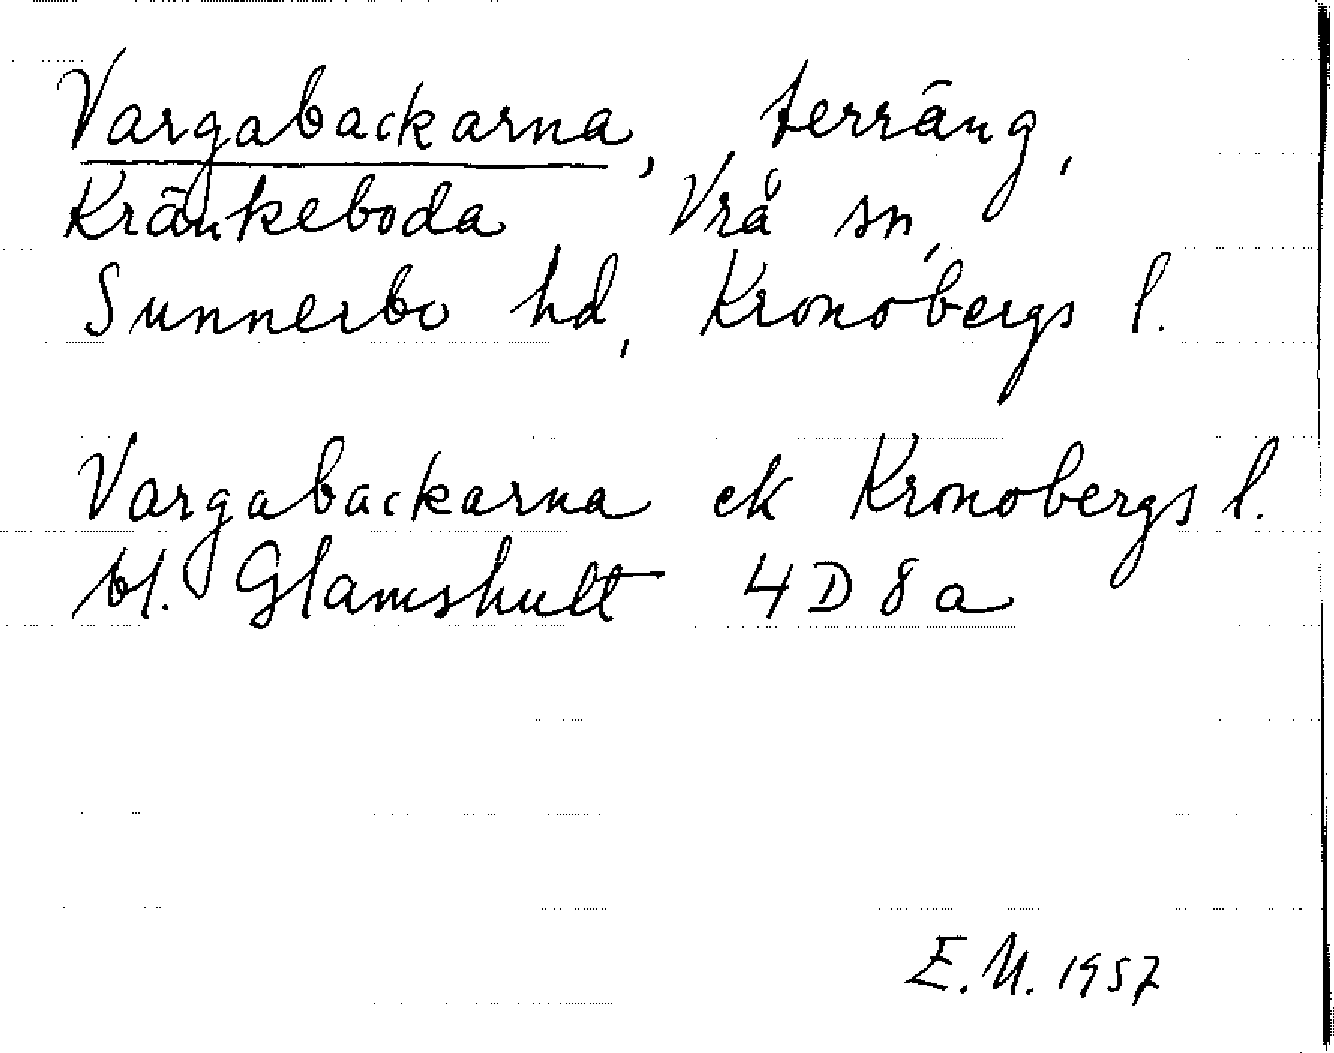 Vargabackarna, terräng,
Kränkeboda Vrå sn,
Sunnerbo hd, Kronobergs l.
Vargabackarna ek Kronobergs l.
bl. Glamshult 4D8a
E.U. 1957